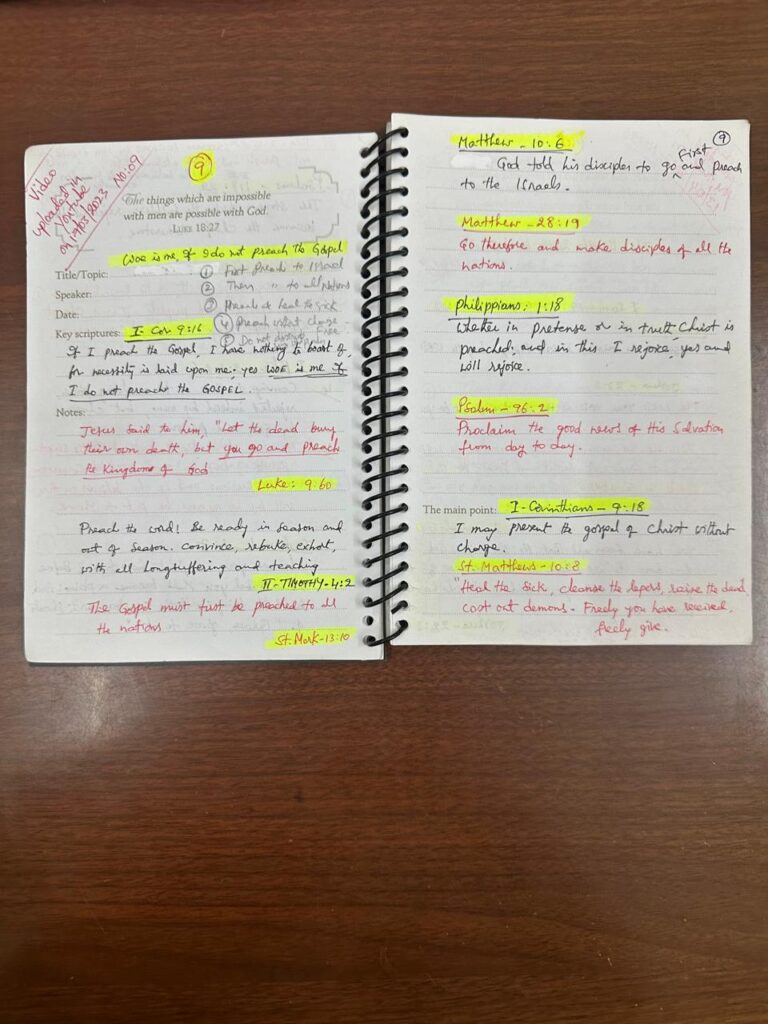 Video
uploaded in
Youtube
on 19/03/2023
No:09
9
The things which are impossible
with men are possible with God.
LUKE 18:27
Woe is me, If I do not preach the Gospel
Title/Topic: ① First preach to Israel
Speaker: ② Then " to all Nations
Date: ③ Preach & heal the sick
④ Preach w/out charge
Key scriptures: I- Cor 9:16
⑤ Do not Free
If I preach the Gospel, I have nothing to boast of,
for necessity is laid upon me. yes WOE is me If
I do not preach the GOSPEL
Notes:
Jesus said to him, "Let the dead bury
their own death, but you go and preach
the Kingdome of God
Luke: 9:60
Preach the word! Be ready in season and
out of season. convince, rebuke, exhort,
with all longsuffering and teaching
II-TIMOTHY-4:2
The Gospel must first be preached to all
the nations
St. Mark-13:10
9
Matthew - 10:6
First
God told his disciples to go and preach
to the Israels.
Matthew - 28:19
Go therefore and make disciples of all the
nations.
Philippians: 1:18
Whether in pretense or in truth Christ is
preached; and in this I rejoice, yes and
will rejoice.
Psalm - 96:2
Proclaim the good news of His Salvation
from day to day.
The main point: I-Corinthians - 9:18
I may present the gospel of Christ without
charge.
St. Matthews - 10:8
"Heal the Sick, cleanse the lepers, raise the dead,
cast out demons. Freely you have received,
freely give.